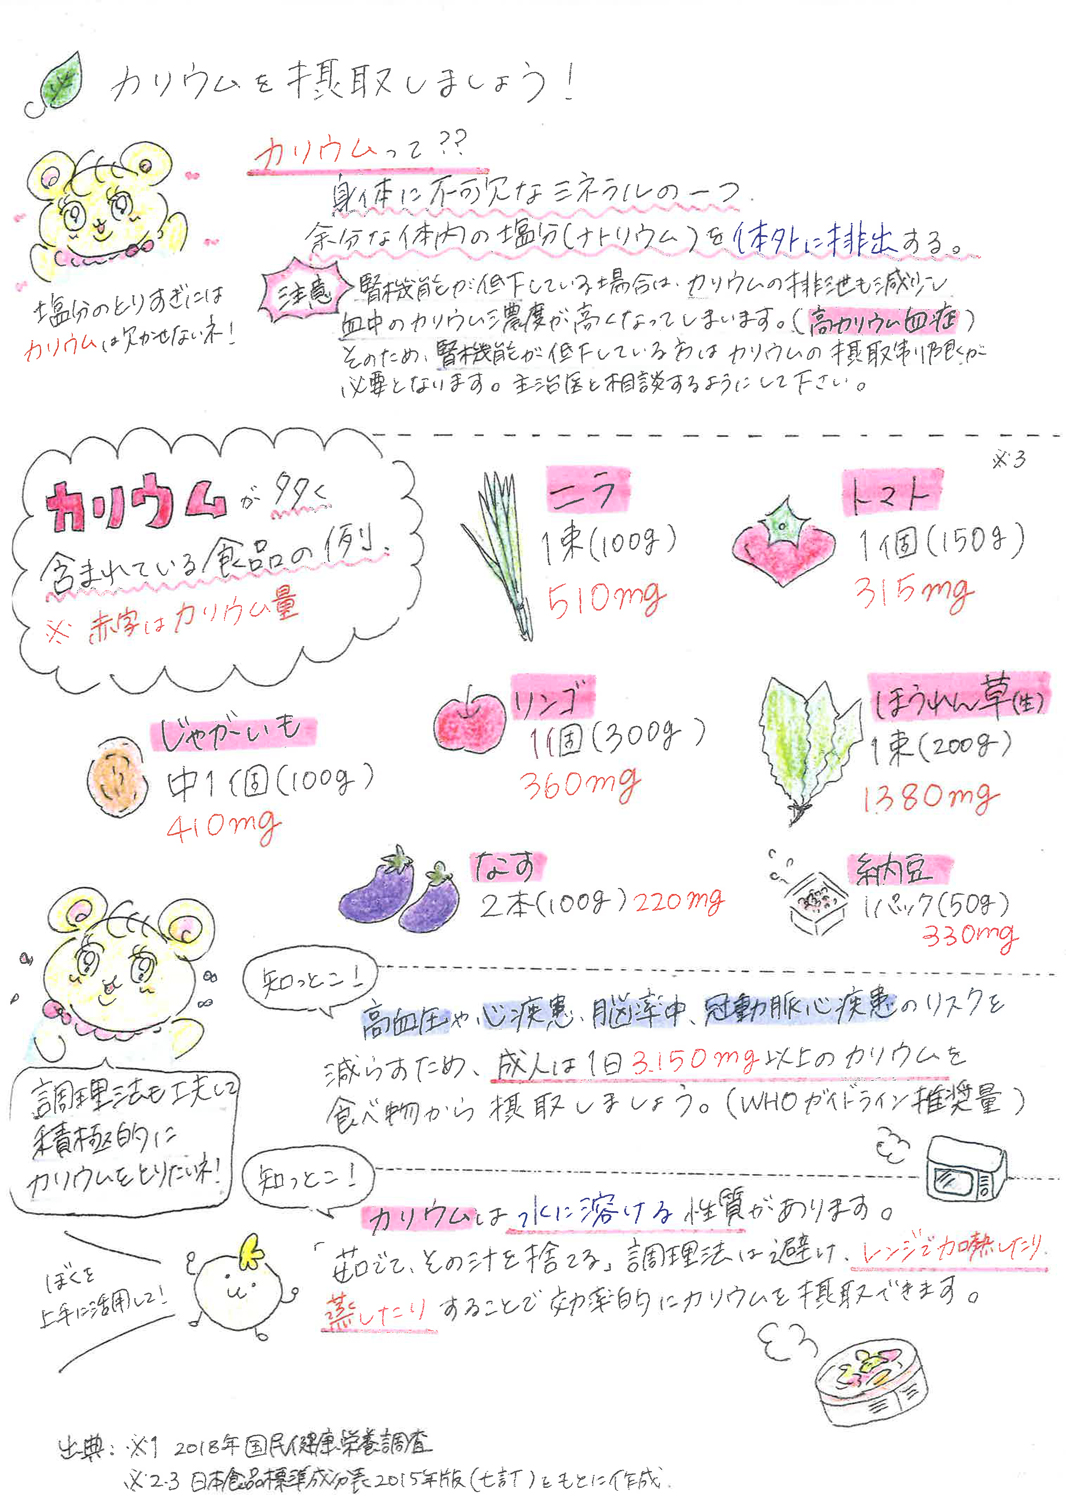 カリウムを摂取しましょう！
カリウムって??
身体に不可欠なミネラルの一つ.
余分な体内の塩分(ナトリウム)を体外に排出する。
塩分のとりすぎには
カリウムは欠かせないネ！
注意
腎機能が低下している場合は、カリウムの排泄も減少し
血中のカリウム濃度が高くなってしまいます。(高カリウム血症)
そのため、腎機能が低下している方はカリウムの摂取制限が
必要となります。主治医と相談するようにして下さい。
※3
カリウムが多く
含まれている食品の例、
※赤字はカリウム量
ニラ
1束(100g)
510mg
トマト
1個(150g)
315mg
じゃがいも
中1個(100g)
410mg
リンゴ
1個(300g)
360mg
ほうれん草(生)
1束(200g)
1380mg
なす
2本(100g) 220mg
納豆
1パック(50g)
330mg
知っとこ！
高血圧や心疾患、脳卒中、冠動脈心疾患のリスクを
減らすため、成人は1日3.150mg以上のカリウムを
食べ物から摂取しましょう。(WHOガイドライン推奨量)
調理法も工夫して
積極的に
カリウムをとりたいネ！
知っとこ！
カリウムは水に溶ける性質があります。
「茹でて、その汁を捨てる」調理法は避け、レンジで加熱したり
蒸したりすることで効率的にカリウムを摂取できます。
ぼくを
上手に活用して！
出典：※1 2018年国民健康栄養調査
※2.3 日本食品標準成分表2015年版(七訂)をもとに作成.